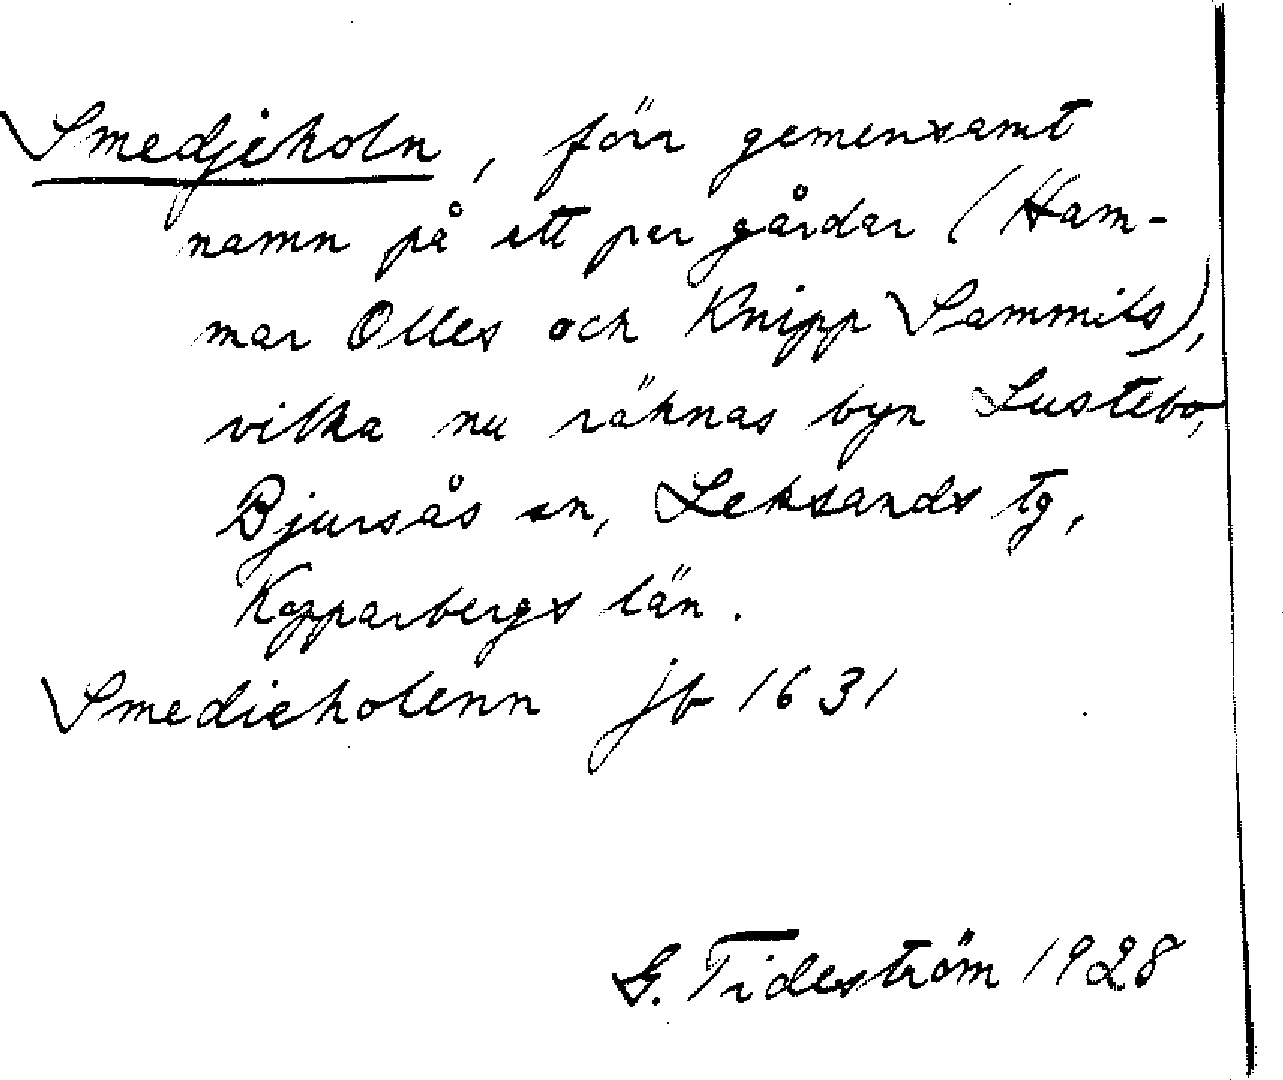 Smedjeholn, förr gemensamt
namn på ett par gårdar (Ham-
mar Olles och Knipp Sammils),
vilka nu räknas byn Lustebo,
Bjursås sn, Leksands tg,
Kopparbergs län.
Smedieholenn jb 1631
G. Tideström 1928